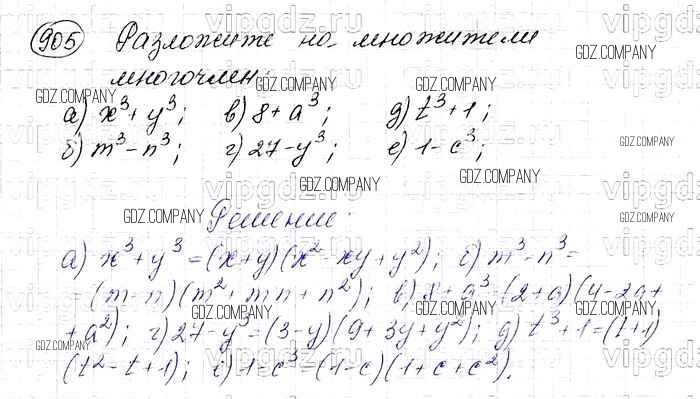 905 Разложите на множители
многочлен:
а) x³ + y³; в) 8 + a³; д) t³ + 1;
б) m³ - n³; г) 27 - y³; е) 1 - c³;
Решение:
а) x³ + y³ = (x + y)(x² - xy + y²); б) m³ - n³ =
= (m - n)(m² + mn + n²); в) 8 + a³ = (2 + a)(4 - 2a +
+ a²); г) 27 - y³ = (3 - y)(9 + 3y + y²); д) t³ + 1 = (t + 1)
(t² - t + 1); е) 1 - c³ = (1 - c)(1 + c + c²).